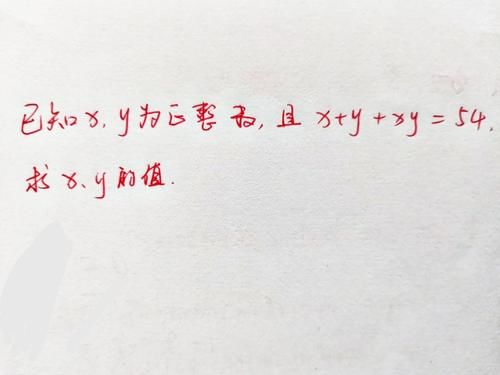 已知x、y为正整数,且x+y+xy=54,
求x、y的值.